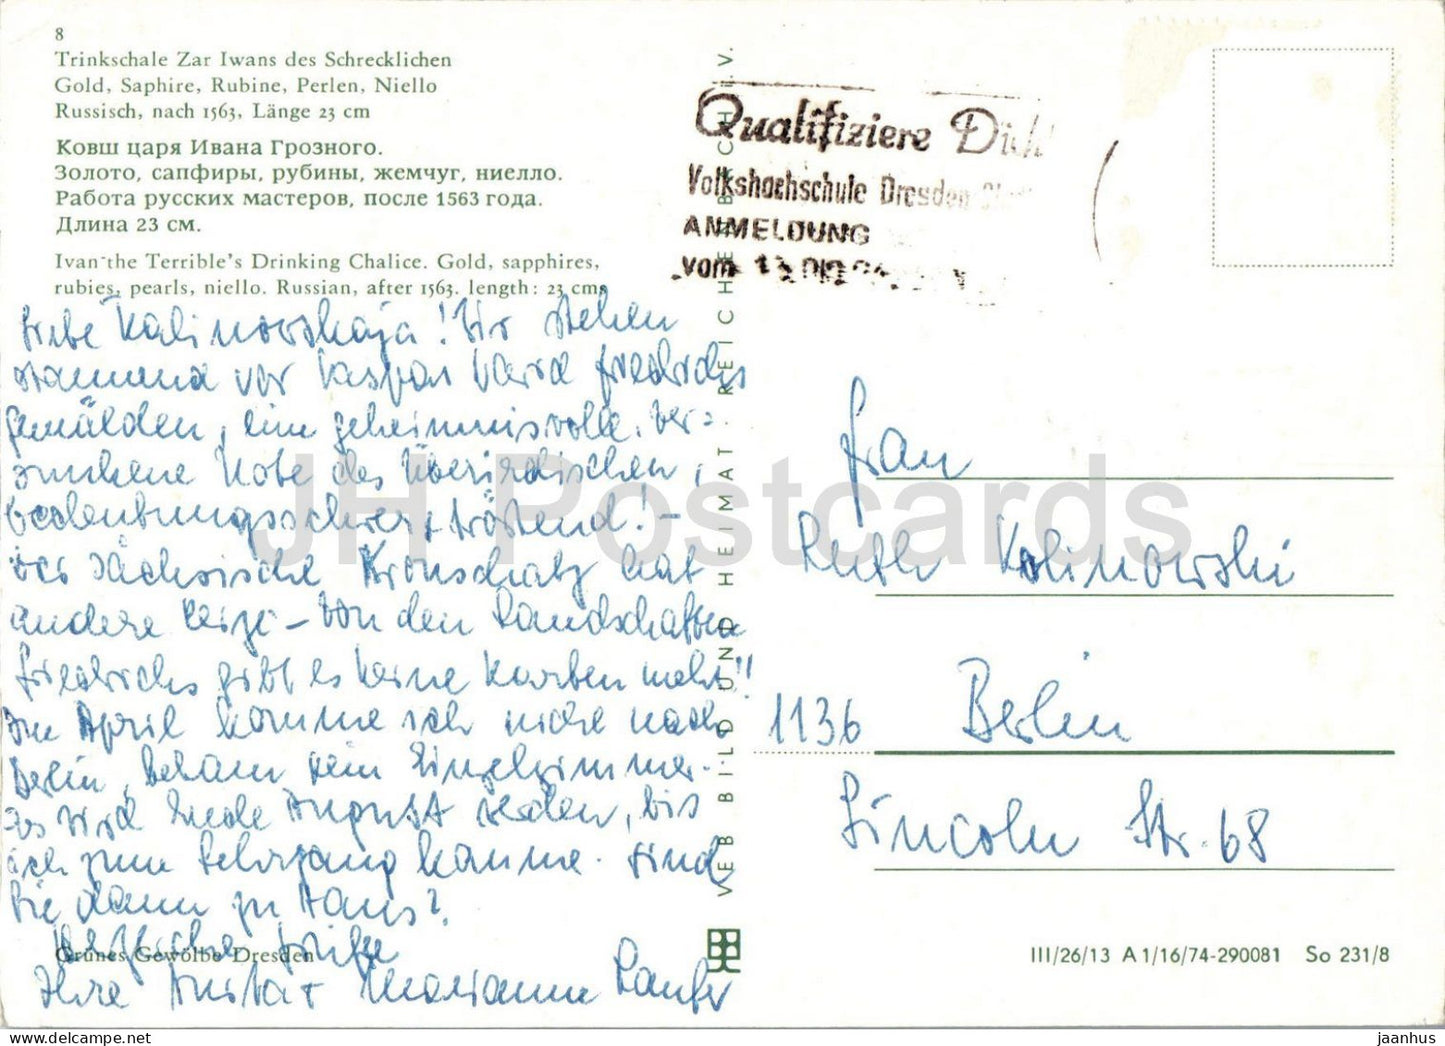 8
Trinkschale Zar Iwans des Schrecklichen
Gold, Saphire, Rubine, Perlen, Niello
Russisch, nach 1563, Länge 23 cm
Ковш царя Ивана Грозного.
Золото, сапфиры, рубины, жемчуг, ниелло.
Работа русских мастеров, после 1563 года.
Длина 23 см.
Ivan the Terrible's Drinking Chalice. Gold, sapphires,
rubies, pearls, niello. Russian, after 1563. length: 23 cms
Liebe Kalinowskaja! Wir stehen
staunend vor Caspar David Friedrichs
gemälden, eine geheimnisvolle, ver-
sunkene Note des Überirdischen,
bedeutungsschwer + tröstend! -
Der Sächsische Kronschatz hat
andere Reize - Von den Landschaften
Friedrichs gibt es keine Karten mehr!!
Im April komme ich nicht nach
Berlin, bekam kein Einzelzimmer.
Es wird Ende August werden, bis
ich zum Lehrgang komme. Sind
Sie dann zu Haus?
Herzliche Grüße
Ihre Marianne
Grünes Gewölbe Dresden
VEB BILD UND HEIMAT REICHENBACH I. V.
Qualifiziere Dich
Volkshochschule Dresden
ANMELDUNG
vom
Frau
Ruth Kalinowski
1136 Berlin
Lincoln Str. 68
III/26/13 A 1/16/74-290081 So 231/8
JH Postcards
jaanhus @ HipPostcard.com